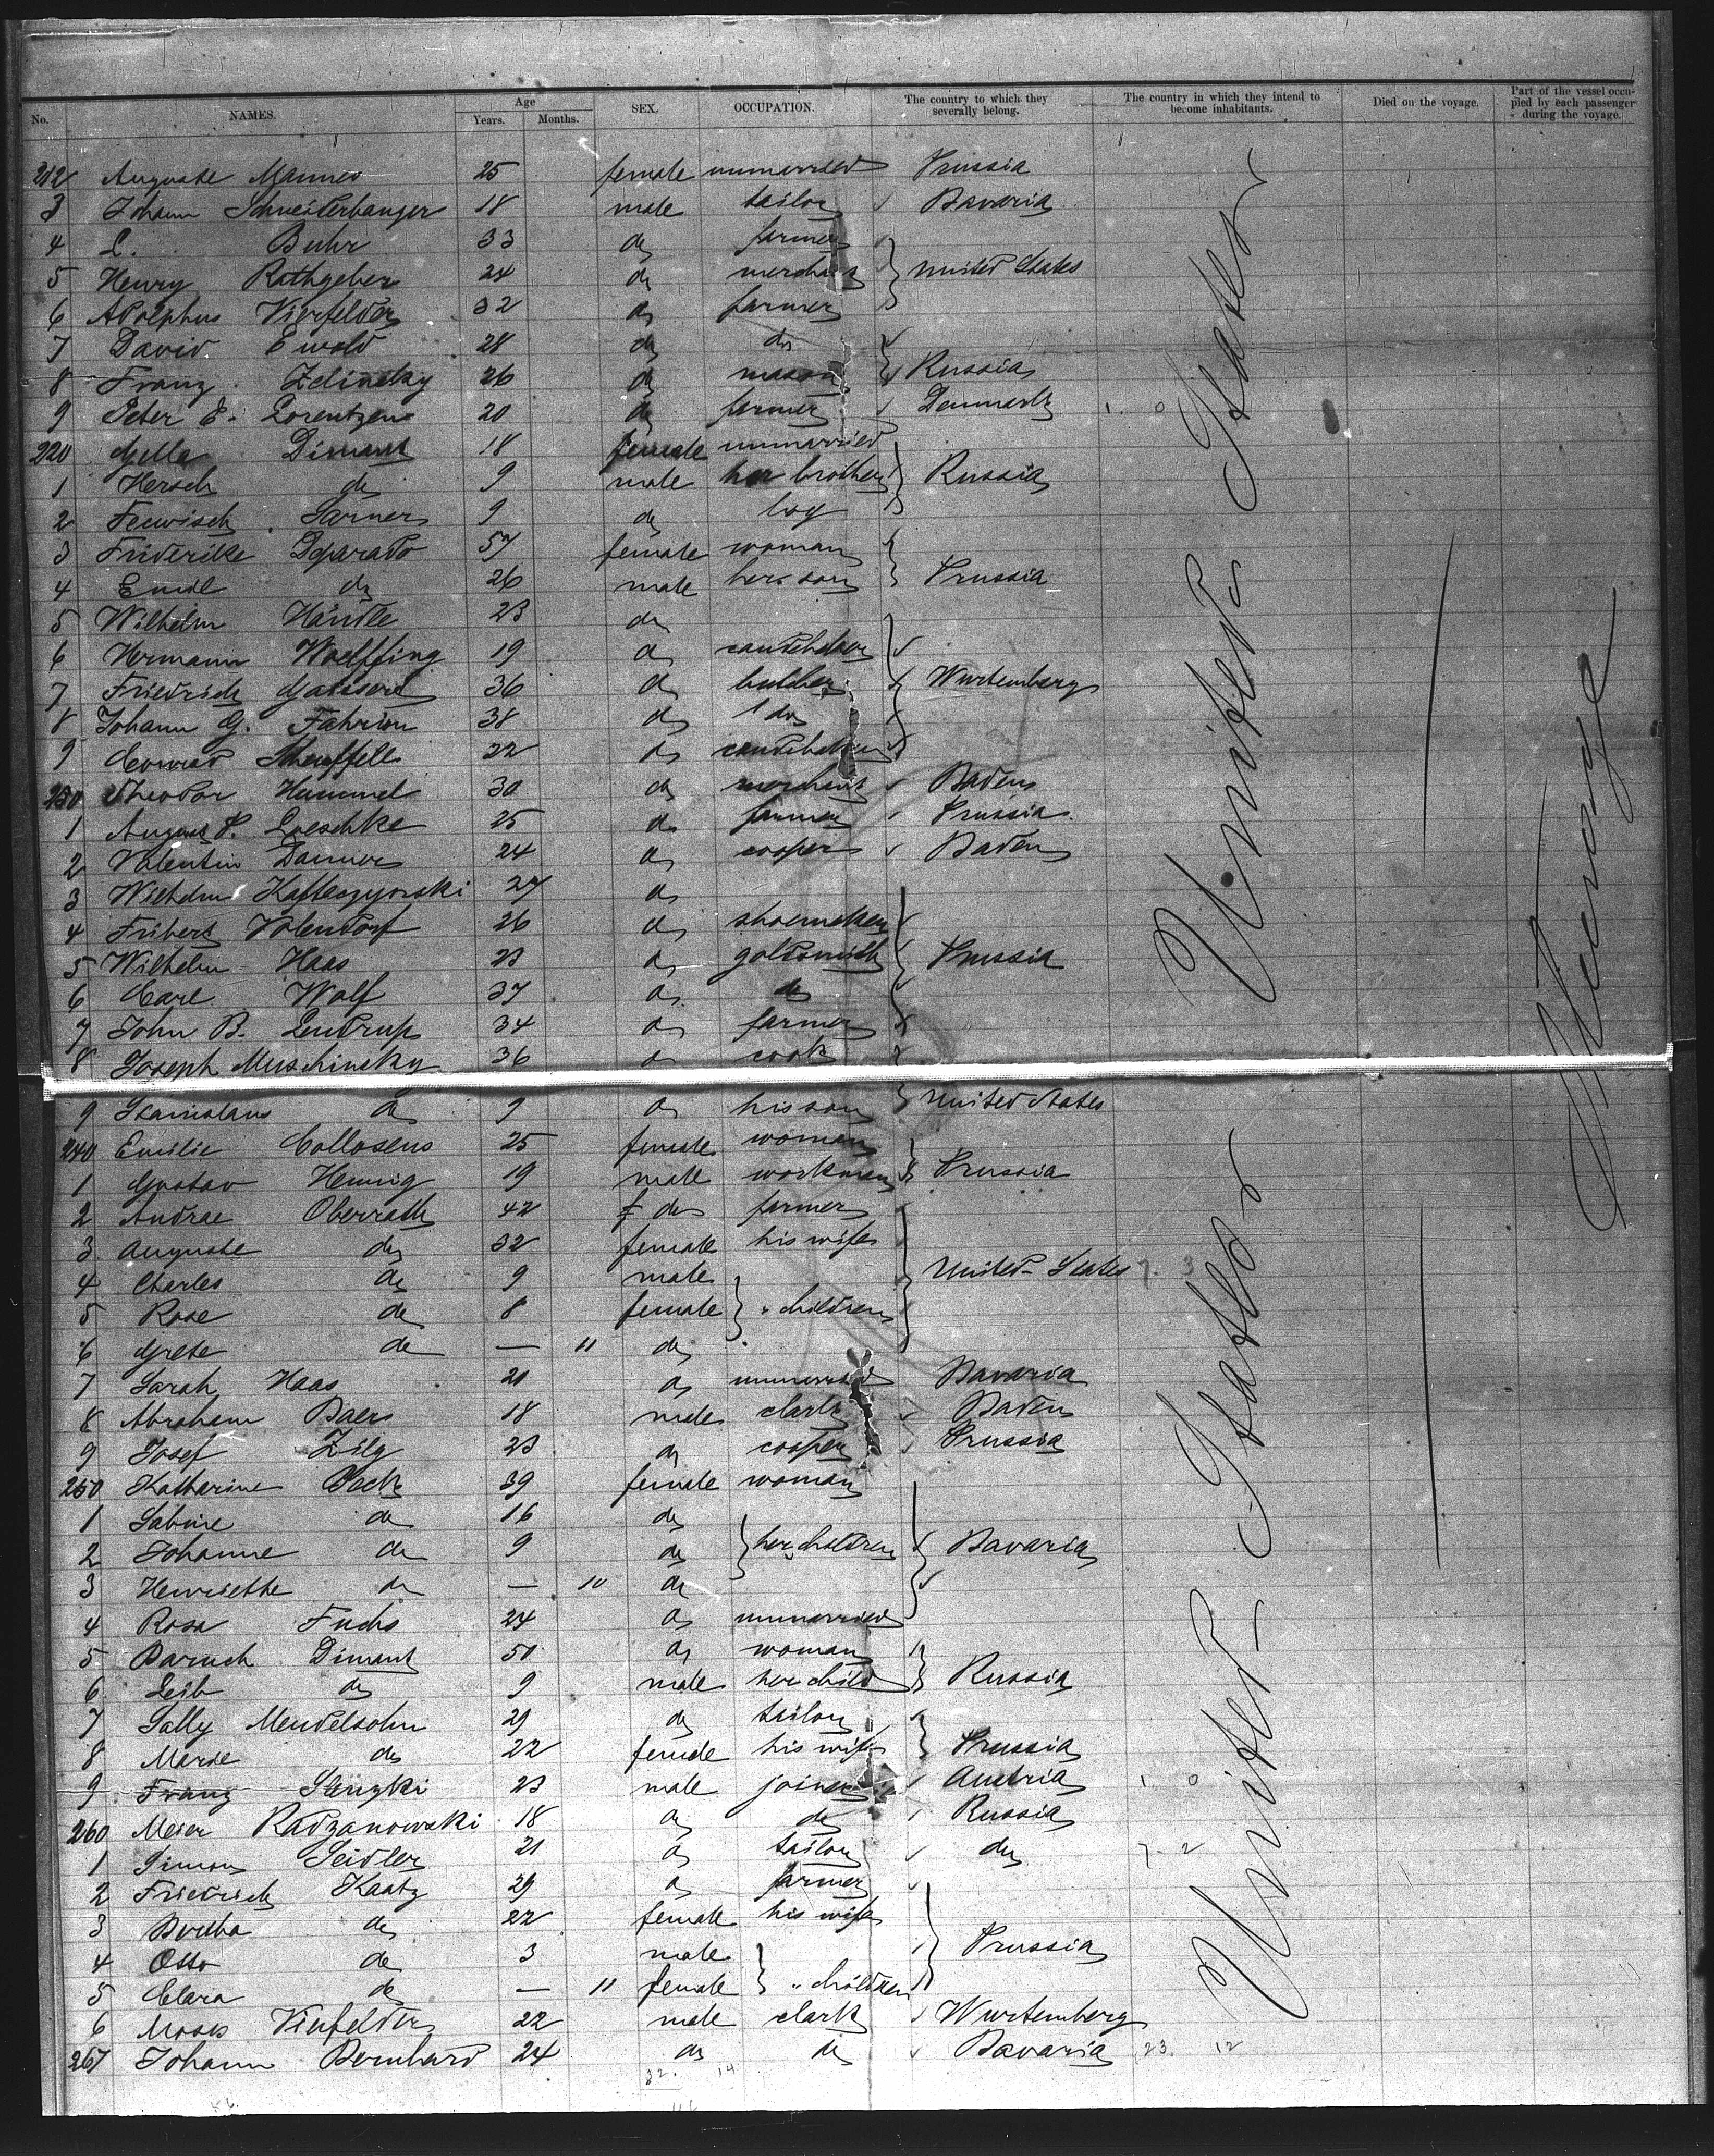 No. NAMES. Age Years. Months. SEX. OCCUPATION. The country to which they severally belong. The country in which they intend to become inhabitants. Died on the voyage. Part of the vessel occupied by each passenger during the voyage.
212 Auguste Mannes 25 female unmarried Prussia
3 Johann 18 male tailor Bavaria
4 L. Buhr 33 do farmer
5 Henry Rothgeber 24 do merchant United States
6 Adolphus Vierfelder 32 do farmer
7 David Ewald 28 do do
8 Franz Zelinsky 26 do mason Russia
9 Peter E. Lorentzen 20 do farmer Denmark 1. 0
220 Gella Dimant 18 female unmarried
1 Hersch do 9 male her brother Russia
2 Feiwisch Sarner 9 do boy
3 Friderike 57 female woman
4 Emil do 26 male her son Prussia
5 Wilhelm Händle 23 do
6 Hermann Woelffing 19 do
7 Friedrich 36 do butcher Wurtemberg
8 Johann G. Fahrion 38 do do
9 Conrad 22 do
230 Theodor Hummel 30 do merchant Baden
1 August P. Loeschke 25 do farmer Prussia
2 Valentin 24 do cooper Baden
3 Wilhelm 27 do
4 26 do shoemaker
5 Wilhelm Haas 23 do goldsmith Prussia
6 Carl Wolf 37 do do
7 John B. Lentrup 34 do farmer
8 Joseph Muschinsky 36 do cook
9 Stanislaus do 9 do his son United States
240 Emilie 25 female woman
1 Gustav Hennig 19 male workman Prussia
2 Andrae Oberrath 42 do farmer
3 Auguste do 32 female his wife
4 Charles do 9 male United States 7. 3
5 Rose do 8 female " children
6 Grete do — 11 do
7 Sarah Haas 20 do unmarried Bavaria
8 Abraham Baer 18 male clark Baden
9 Josef Zilg 23 do cooper Prussia
250 Katharine Beck 39 female woman
1 Sabine do 16 do
2 Johanne do 9 do her children Bavaria
3 Henriette do — 10 do
4 Rosa Fuchs 24 do unmarried
5 Baruch Dimant 50 do woman
6 Leib do 9 male her child Russia
7 Sally Mendelsohn 29 do tailor
8 Marie do 22 female his wife Prussia
9 Franz 23 male joiner Austria 1 0
260 Meier Radzanowski 18 do do Russia
1 Simon Seidler 21 do tailor do 7. 2
2 Friedrich Kaatz 29 do farmer
3 Bertha do 22 female his wife
4 Otto do 3 male Prussia
5 Clara do — 11 female " children
6 Moses Vierfelder 22 male clark Wurtemberg
267 Johann Bernhard 24 do do Bavaria 23. 12
32. 14
United States
United States
Steerage